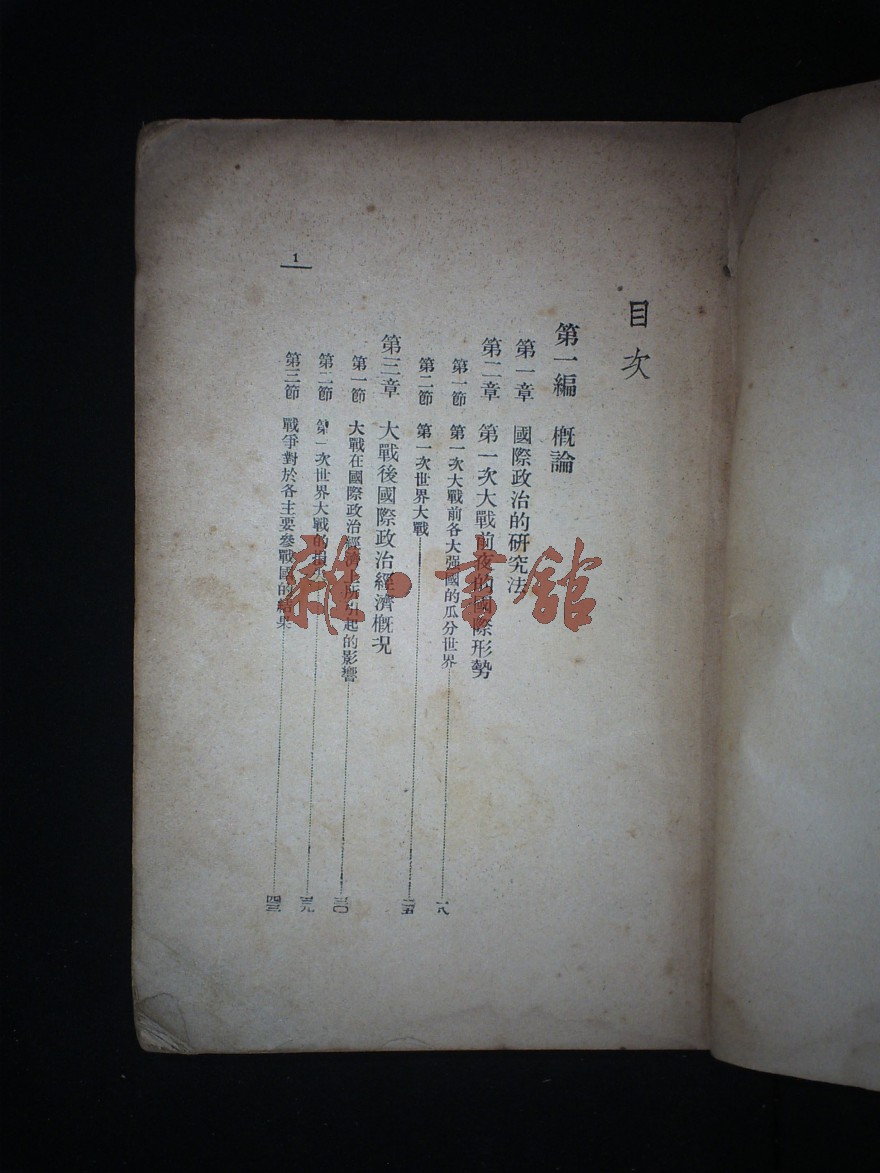 目次
第一編 概論
第一章 國際政治的研究法
第二章 第一次大戰前夜的國際形勢
第一節 第一次大戰前各大强國的瓜分世界 一八
第二節 第一次世界大戰
第三章 大戰後國際政治經濟概況
第一節 大戰在國際政治經濟上所引起的影響 三〇
第二節 第一次世界大戰的損 三九
第三節 戰爭對於各主要參戰國的結果 四三
1
雜·書館